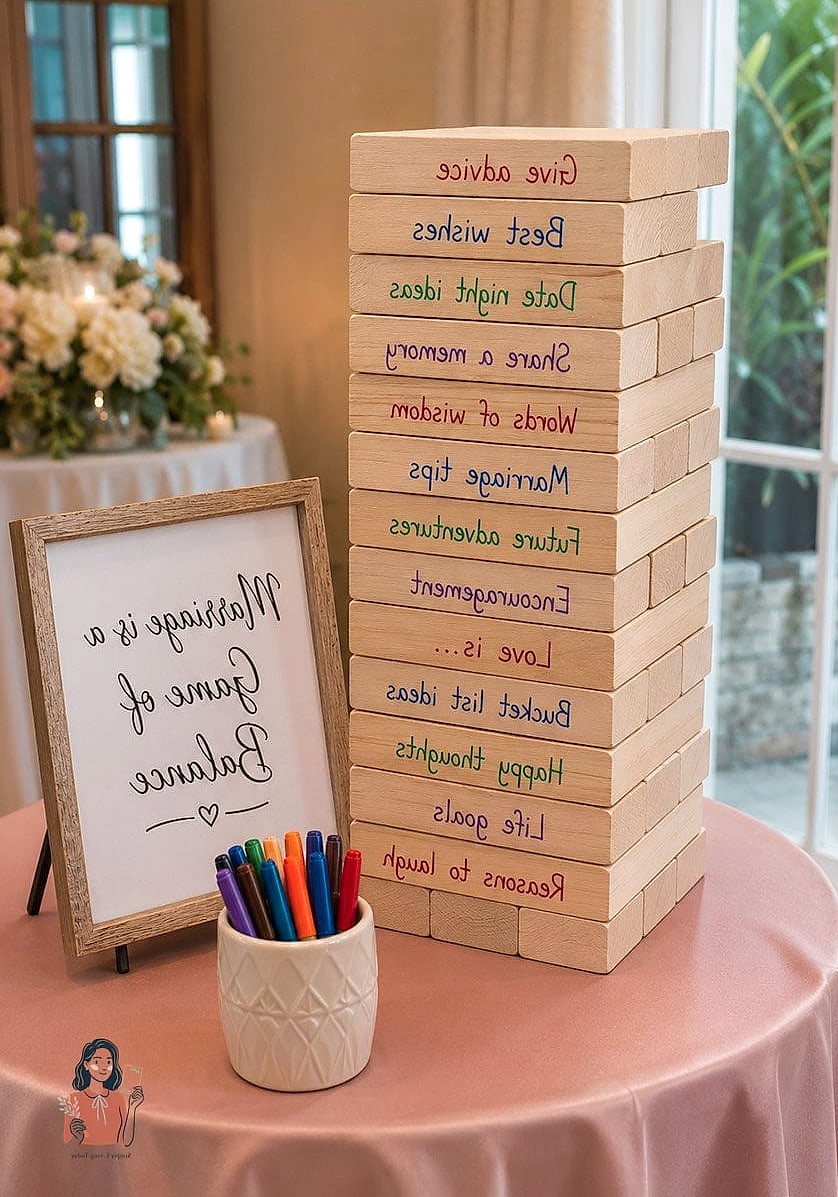 Give advice
Best wishes
Date night ideas
Share a memory
Words of wisdom
Marriage tips
Future adventures
Encouragement
Love is...
Bucket list ideas
Happy thoughts
Life goals
Reasons to laugh
Marriage is a
Game of
Balance